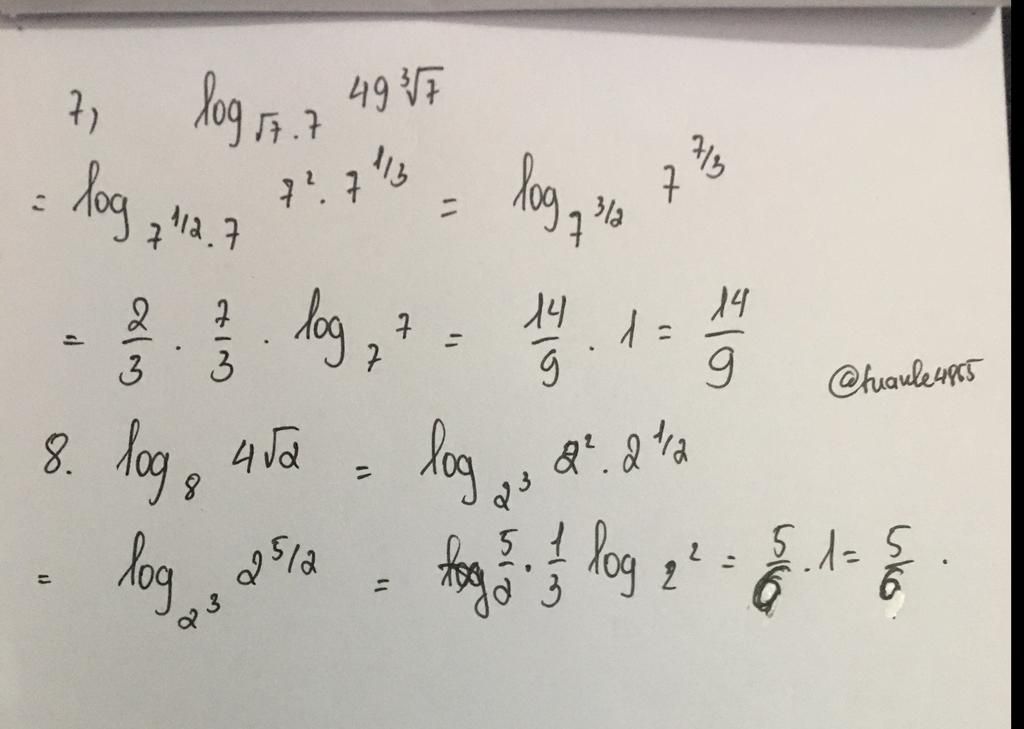 7, log_{√7 . 7} 49 ∛7
= log_{7^{1/2} . 7} 7² . 7^{1/3} = log_{7^{3/2}} 7^{7/3}
= 2/3 . 7/3 . log₇ 7 = 14/9 . 1 = 14/9
@tuanle4955
8. log₈ 4√2 = log_{2³} 2² . 2^{1/2}
= log_{2³} 2^{5/2} = 5/2 . 1/3 log₂ 2 = 5/6 . 1 = 5/6 .